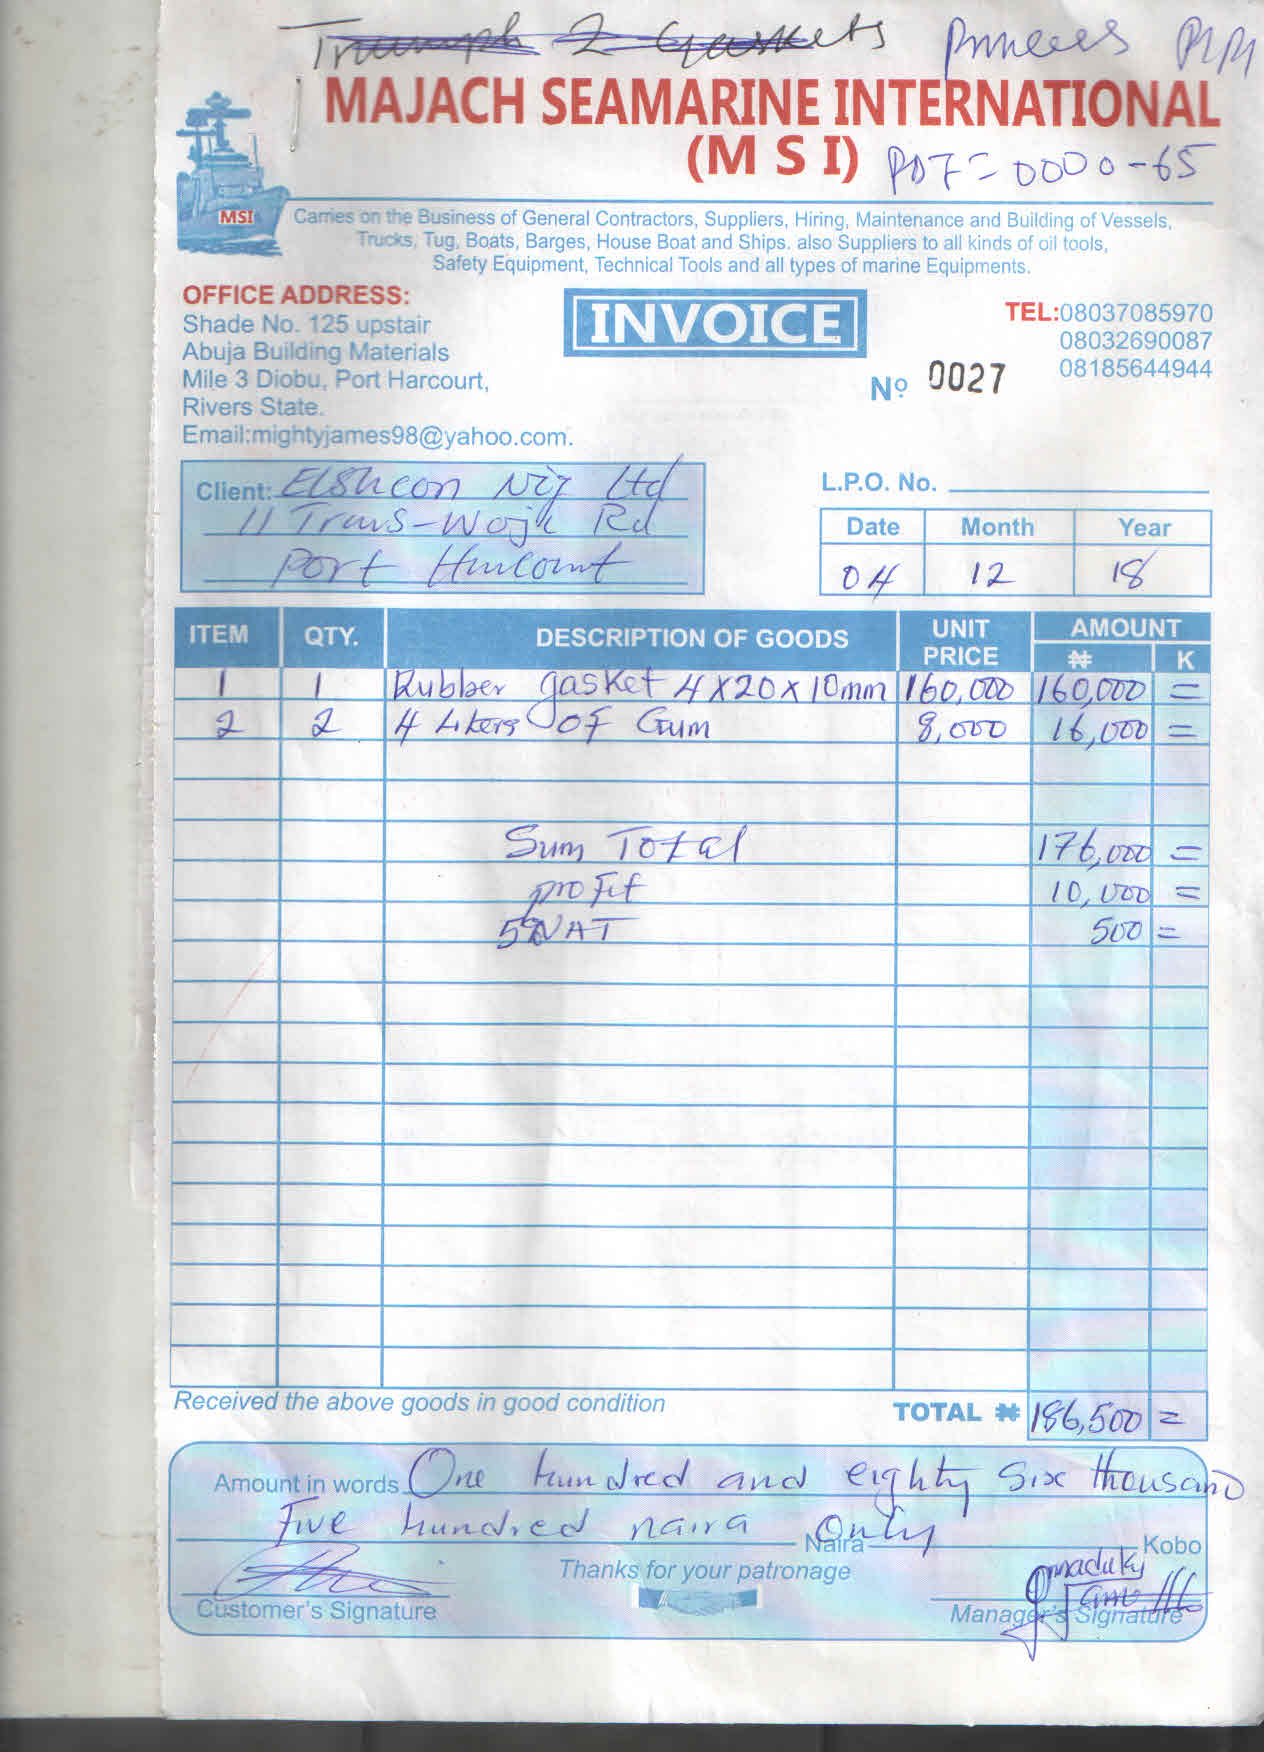 Triumph 2 Gaskets Princess
MAJACH SEAMARINE INTERNATIONAL
(M S I) PDF = 0000-65
MSI
Carries on the Business of General Contractors, Suppliers, Hiring, Maintenance and Building of Vessels,
Trucks, Tug, Boats, Barges, House Boat and Ships. also Suppliers to all kinds of oil tools,
Safety Equipment, Technical Tools and all types of marine Equipments.
OFFICE ADDRESS:
Shade No. 125 upstair
Abuja Building Materials
Mile 3 Diobu, Port Harcourt,
Rivers State.
Email:mightyjames98@yahoo.com.
INVOICE
Nº 0027
TEL:08037085970
08032690087
08185644944
Client: Elshcon Nig Ltd
11 Trans-Woji Rd
Port Harcourt
L.P.O. No.
Date Month Year
04 12 18
ITEM QTY. DESCRIPTION OF GOODS UNIT PRICE AMOUNT ₦ K
1 1 Rubber gasket 4X20X10mm 160,000 160,000 =
2 2 4 Liters of Gum 8,000 16,000 =
Sum Total 176,000 =
profit 10,000 =
5% VAT 500 =
Received the above goods in good condition
TOTAL ₦ 186,500 =
Amount in words One hundred and eighty six thousand
Five hundred naira only Naira Kobo
Thanks for your patronage
Customer's Signature
Manager's Signature